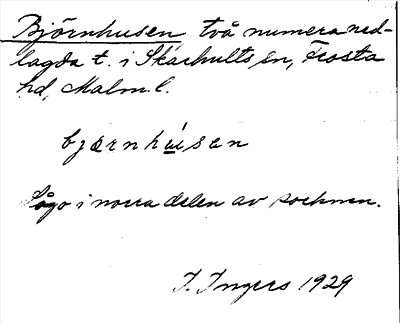 Björnhusen två numera ned-
lagda t. i Skarhults sn, Frosta
hd, Malm. l.
bjærnhúsen
Lågo i norra delen av socknen.
I. Ingers 1929